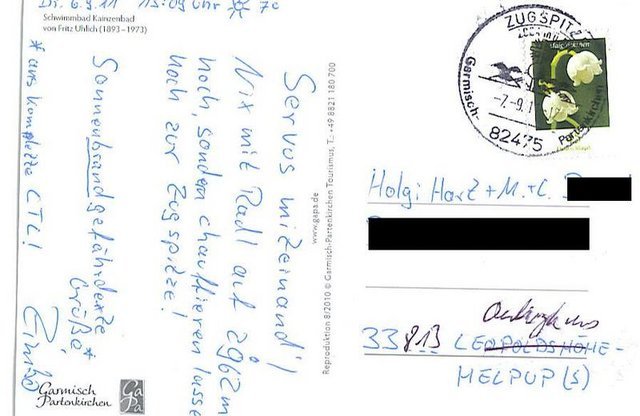 Di. 6.9.11 15:09 Uhr 7°
Schwimmbad Kainzenbad
von Fritz Uhlich (1893–1973)
Servus mitzeinand!
Nix mit Radl auf 2962m
hoch, sondern chauffieren lassen
hoch zur Zugspitze!
Sonnenbrandgefährdete
Grüße,*
* ans komplette CTL!
Garmisch
Partenkirchen
GaPa
Reproduktion 8/2010 © Garmisch-Partenkirchen Tourismus, T.: +49 8821 180 700
www.gapa.de
ZUGSPITZE
Garmisch-
Partenkirchen
-7.-9.1
82475
Maiglöckchen
Holgi Harz + M.+C.
33813 LEOPOLDSHÖHE-
HELPUP (S)